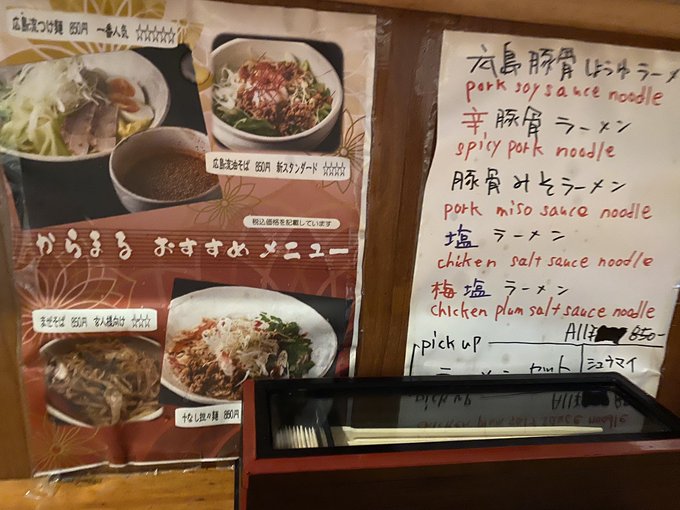 広島流つけ麺 850円 一番人気 ☆☆☆☆☆
広島流油そば 850円 新スタンダード ☆☆☆☆
税込価格を記載しています
からまる おすすめ メニュー
まぜそば 850円 玄人様向け ☆☆☆
汁なし担々麺 850円
広島豚骨しょうゆラーメ
pork soy sauce noodle
辛豚骨ラーメン
spicy pork noodle
豚骨みそラーメン
pork miso sauce noodle
塩ラーメン
chicken salt sauce noodle
梅塩ラーメン
chicken plum salt sauce noodle
All 850-
pick up
シュウマイ